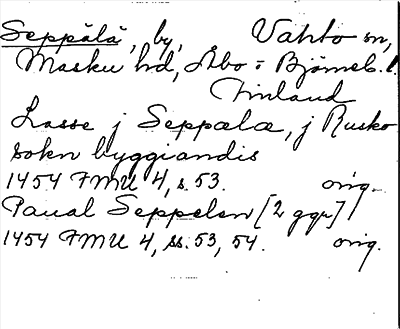 Seppälä, by, Vahto sn,
Masku hd, Åbo = Björneb. l.
Finland
Lasse j Seppala, j Rusko
sokn byggiandis
1454 FMU 4, s. 53. orig.
Paual Seppelen [2 ggr]
1454 FMU 4, ss. 53, 54. orig.